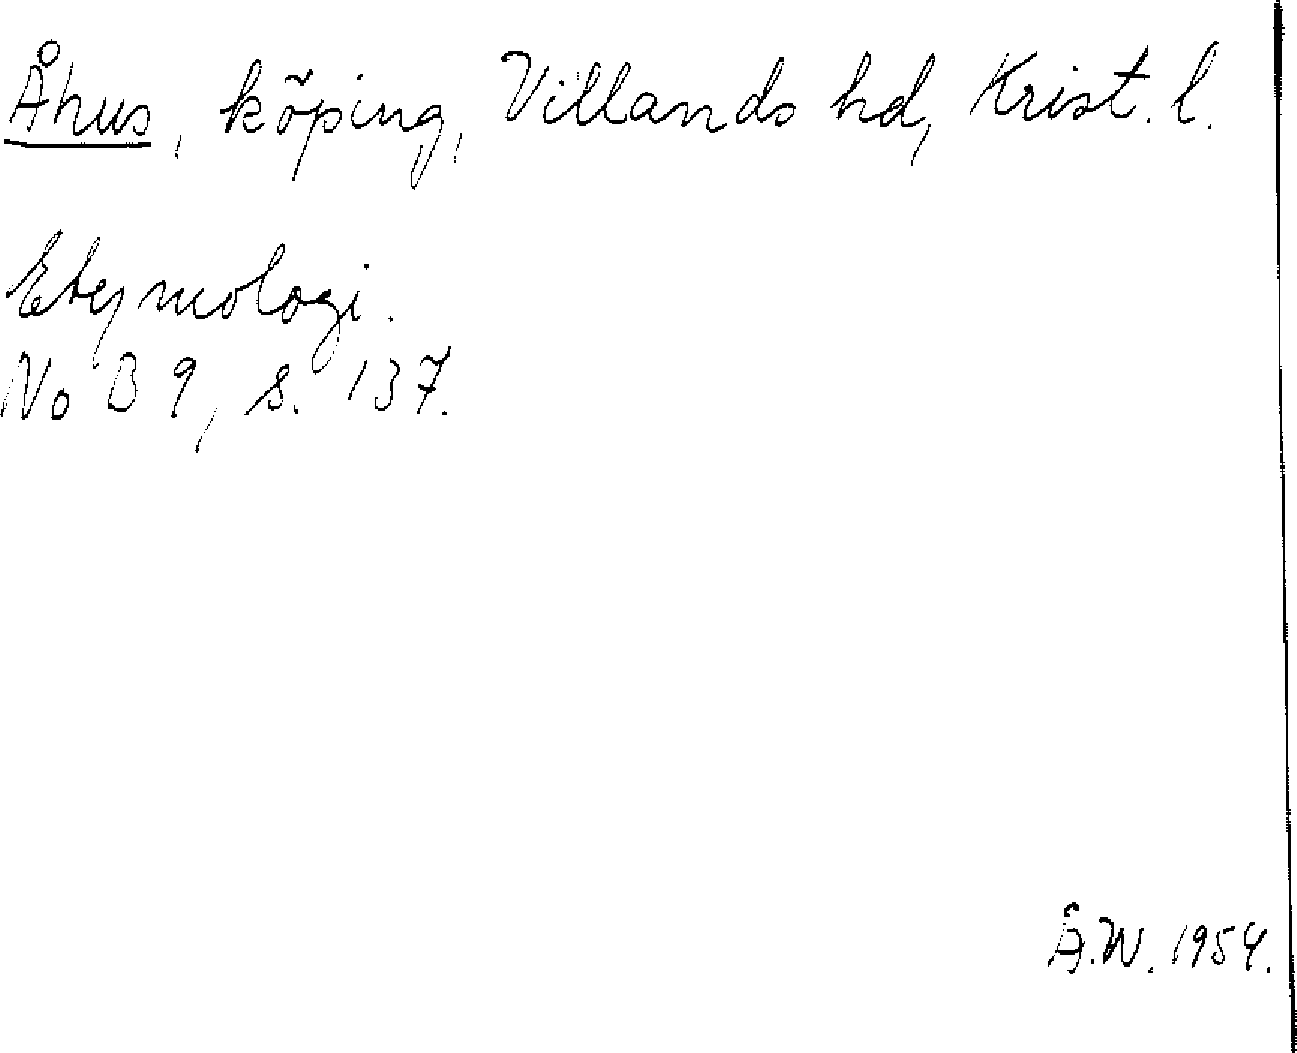 Åhus, köping, Villands hd, Krist. l.
Etymologi.
NoB 9, s. 137.
Å.W. 1954.